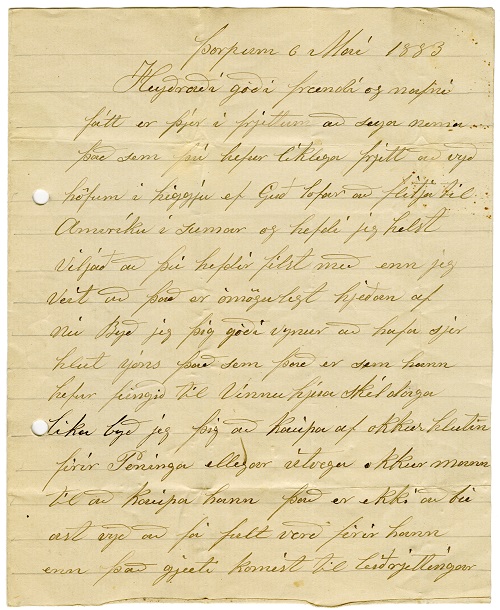 Þorpum 6 Maí 1883
Heyðraði góði frændi og nafni
fátt er þjer i frjettum að seiga nema
það sem þú hefur liklega frjett að vyð
höfum i higgju ef Guð lofar að flitja til
Ameríku i sumar og hefdi jeg helst
viljað að þú hefdir filst með enn jeg
veit að það er ómögulegt hjeðan af
nú Byð jeg þig góði vynur að hafa
hlut jóns það sem það er sem hann
hefur fengið til Vinnu hjera
lika byð jeg þig að kaupa af okkur hlutin
firir Peninga ellegar útvega okkur mann
til að kaupa hann það er ekki að bú
ast vyð að fá fult verd firir hann
enn það gjæti komist til leiðrjettingar